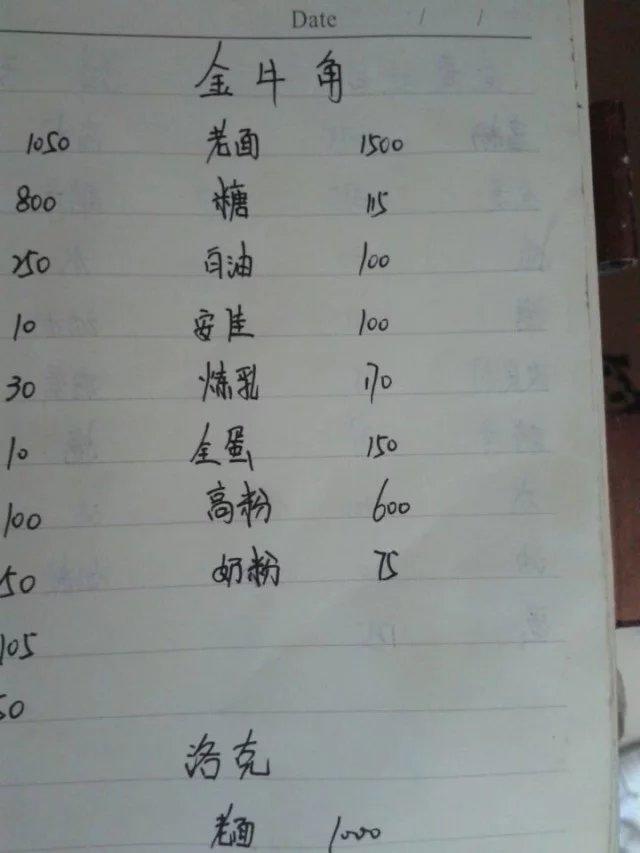 Date / /
金牛角
1050 老面 1500
800 糖 115
250 白油 100
10 安佳 100
30 炼乳 170
10 全蛋 150
100 高粉 600
50 奶粉 75
105
50
洛克
老面 1000